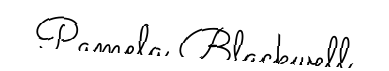 Pamela Blackwell